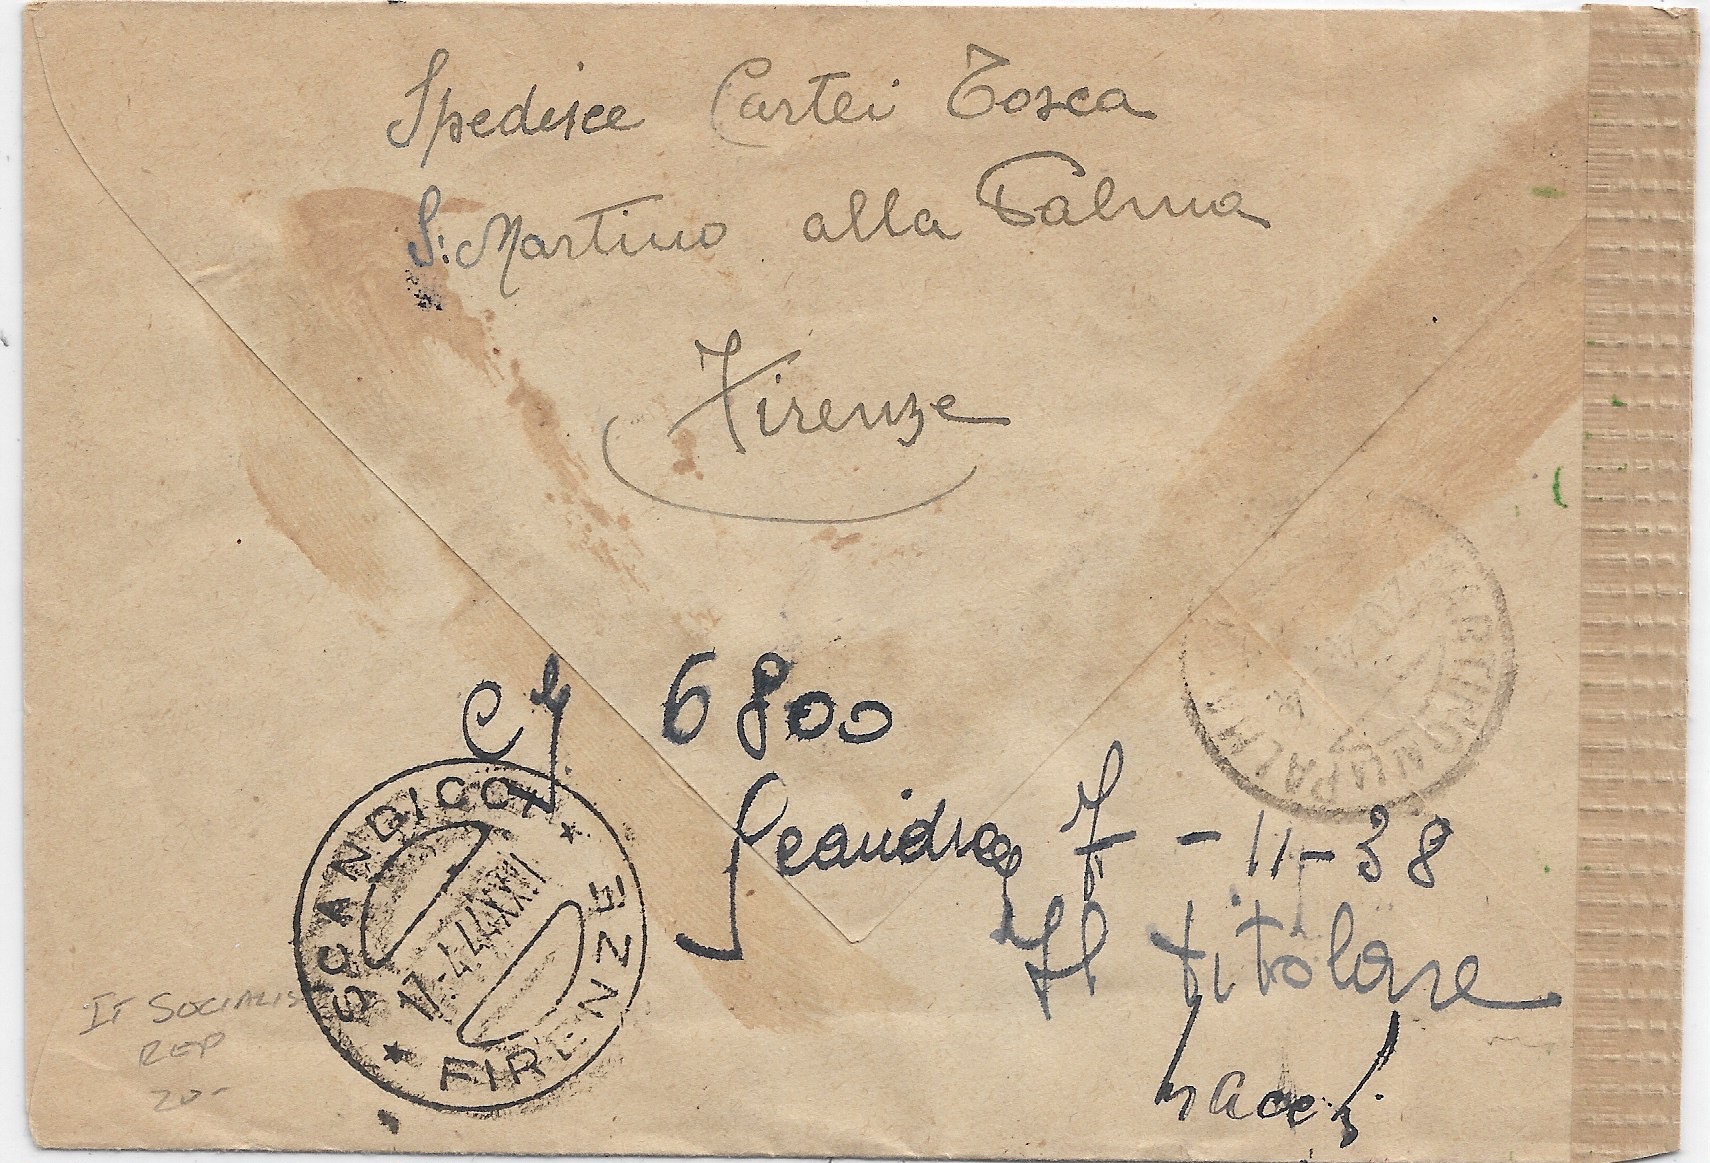 Spedisce Cartei Tosca
S. Martino alla Palma
Firenze
6800
7-11-38
Il titolare
SCANDICCI
17.4.44 XXII
FIRENZE
IT SOCIALIS
REP
20-